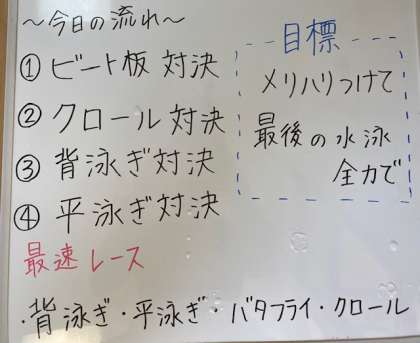 ～今日の流れ～
① ビート板 対決
② クロール 対決
③ 背泳ぎ 対決
④ 平泳ぎ 対決
最速 レース
・背泳ぎ・平泳ぎ・バタフライ・クロール
目標
メリハリつけて
最後の水泳
全力で